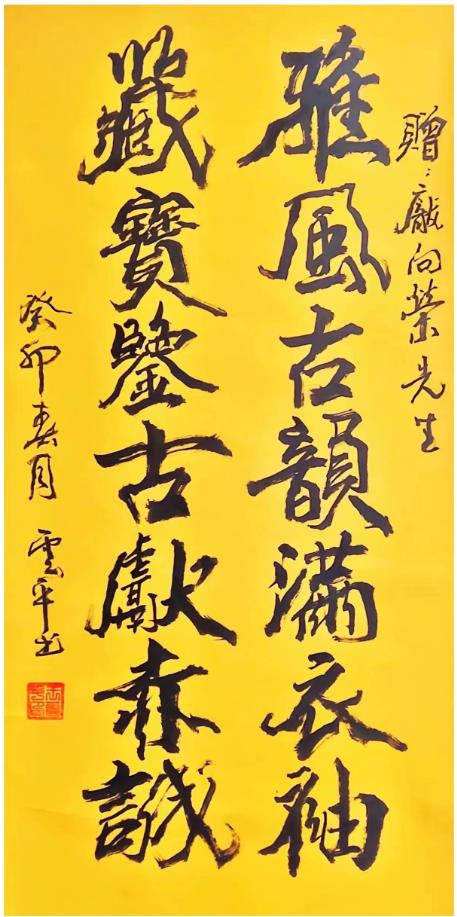 贈：廠向榮先生
雅風古韻滿衣袖
藏寶鑒古獻赤誠
癸卯春月 雲平书